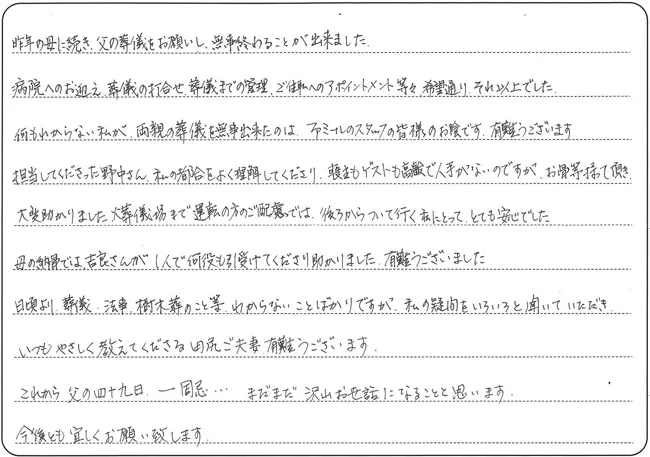 昨年の母に続き、父の葬儀をお願いし、無事終わることが出来ました。
病院へのお迎え、葬儀の打合せ、葬儀までの管理、ご住職へのアポイントメント等々 希望通り、それ以上でした。
何もわからない私が、両親の葬儀を無事出来たのは、ファミールのスタッフの皆様のお陰です。有難うございます
担当してくださった野中さん、私の都合をよく理解してくださり、喪主もゲストも高齢で人手がないのですが、お骨等持って頂き、
大変助かりました 火葬儀場まで運転の方のご配慮では、後ろからついて行く車にとって、とても安心でした
母の納骨では吉良さんが 1人で何役も引受けてくださり助かりました。有難うございました
日頃より、葬儀、法事、樹木葬のこと等、わからないことばかりですが、私の疑問をいろいろと聞いていただき、
いつもやさしく教えてくださる田尻ご夫妻 有難うございます。
これから 父の四十九日、一周忌… まだまだ 沢山お世話になることと思います。
今後とも宜しくお願い致します。